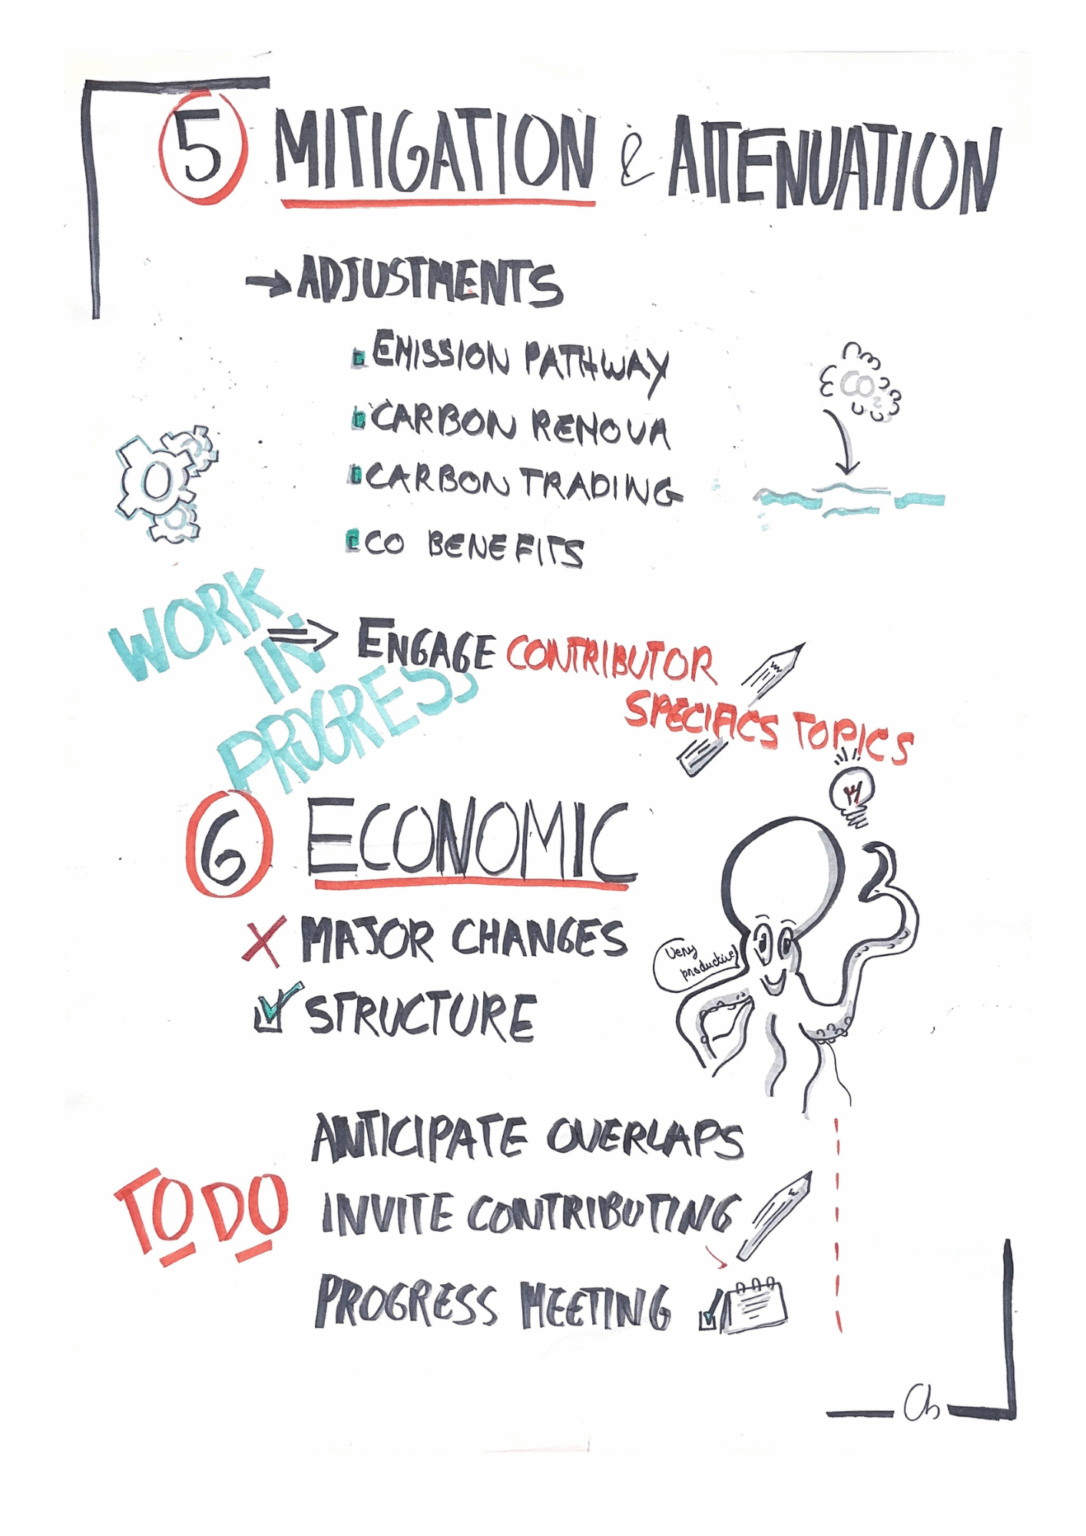 5 MITIGATION & ATTENUATION
→ ADJUSTMENTS
EMISSION PATHWAY
CO2
CARBON RENOVA
CARBON TRADING
CO BENEFITS
WORK
IN
PROGRESS
⇒ ENGAGE CONTRIBUTOR
SPECIFICS TOPICS
6 ECONOMIC
MAJOR CHANGES
Very
productive
STRUCTURE
TO DO
ANTICIPATE OVERLAPS
INVITE CONTRIBUTING
PROGRESS MEETING